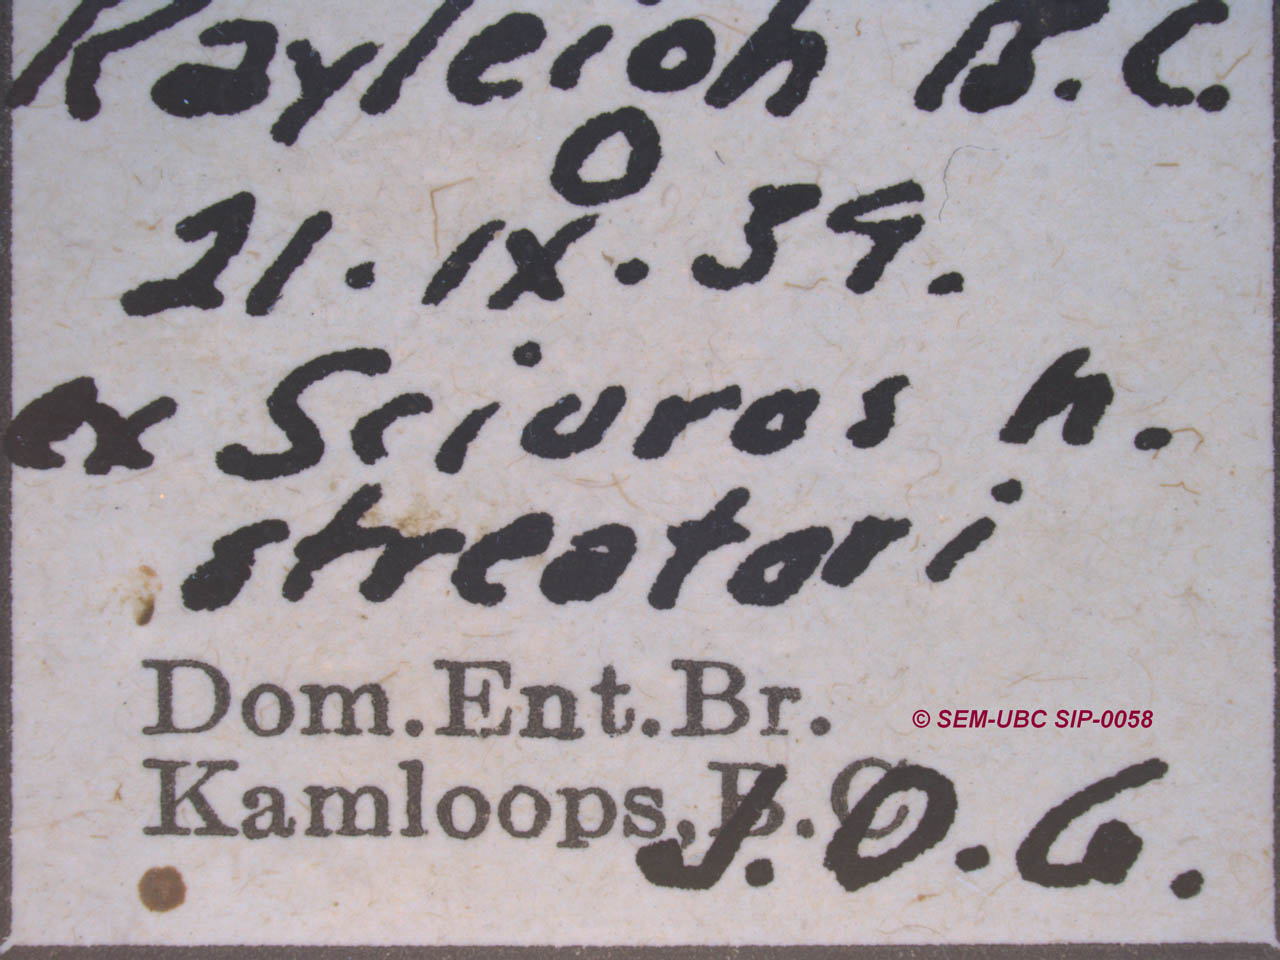 Rayleigh B.C.
21.IX.39.
ex Sciurus h.
streatori
Dom.Ent.Br.
© SEM-UBC SIP-0058
Kamloops, B.C.
J.D.G.